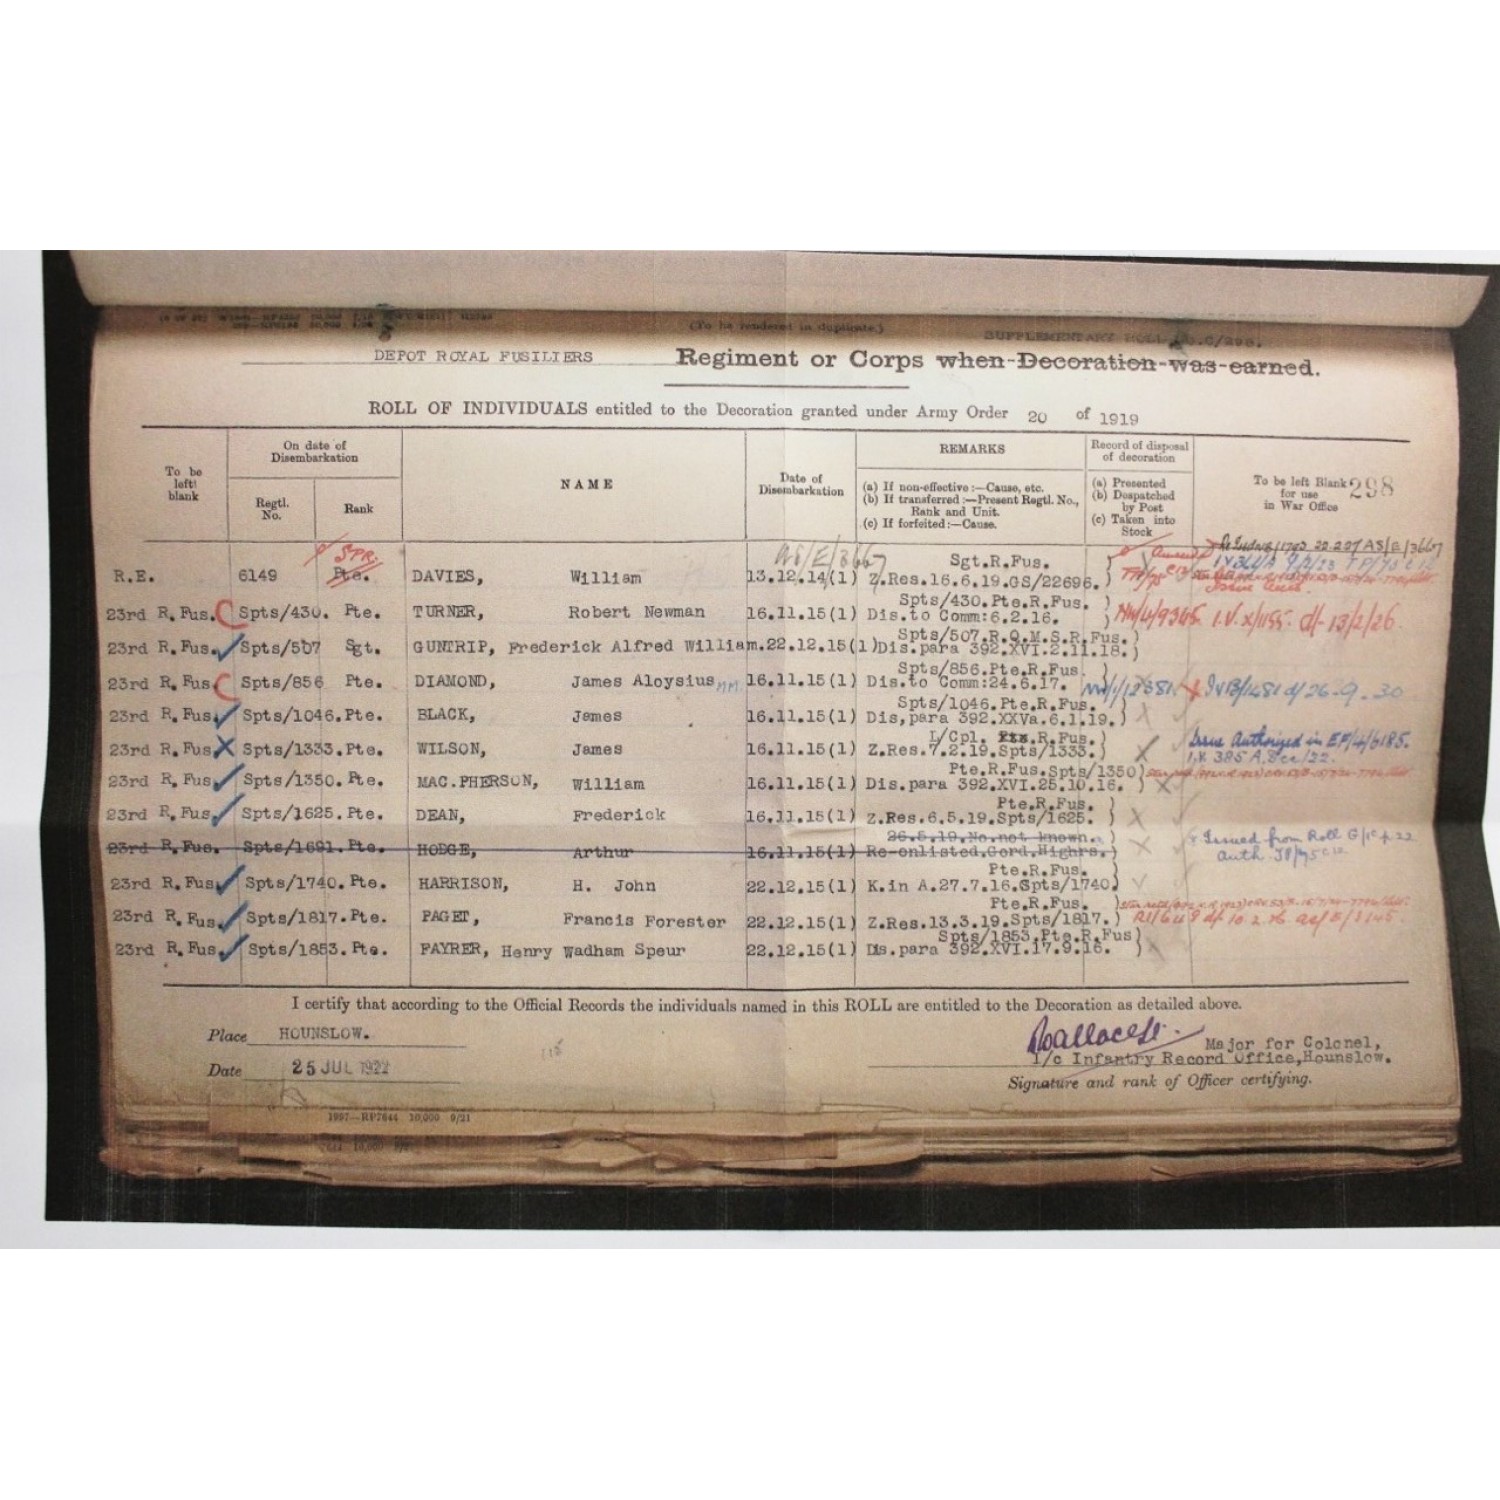 (To be rendered in duplicate.)
SUPPLEMENTARY ROLL No.C/298.
DEPOT ROYAL FUSILIERS Regiment or Corps when Decoration was earned.
ROLL OF INDIVIDUALS entitled to the Decoration granted under Army Order 20 of 1919
To be left blank
On date of Disembarkation
Regtl. No.
Rank
NAME
Date of Disembarkation
REMARKS
(a) If non-effective :—Cause, etc.
(b) If transferred :—Present Regtl. No., Rank and Unit.
(c) If forfeited :—Cause.
Record of disposal of decoration
(a) Presented
(b) Despatched by Post
(c) Taken into Stock
To be left Blank for use in War Office
298
SPR.
Sgt.R.Fus.
R.E. 6149 Pte. DAVIES, William 13.12.14(1) Z.Res.16.6.19.GS/22696.)
Spts/430.Pte.R.Fus. )
23rd R.Fus. C Spts/430. Pte. TURNER, Robert Newman 16.11.15(1) Dis.to Comm:6.2.16. ) NW/4/9345. I.V.X/1155. d/- 13/2/26.
Spts/507.R.Q.M.S.R.Fus.)
23rd R.Fus. Spts/507 Sgt. GUNTRIP, Frederick Alfred William. 22.12.15(1) Dis.para 392.XVI.2.11.18.)
Spts/856.Pte.R.Fus )
23rd R.Fus C Spts/856 Pte. DIAMOND, James Aloysius MM. 16.11.15(1) Dis.to Comm:24.6.17. IVB/1481 d/ 26.9.30
Spts/1046.Pte.R.Fus. )
23rd R.Fus. Spts/1046.Pte. BLACK, James 16.11.15(1) Dis,para 392.XXVa.6.1.19.)
L/Cpl. Pte.R.Fus.)
23rd R.Fus X Spts/1333.Pte. WILSON, James 16.11.15(1) Z.Res.7.2.19.Spts/1333.) X Issue Authorized in EF/4/6185.
I.V. 385 A. Dec/22.
Pte.R.Fus.Spts/1350)
23rd R.Fus. Spts/1350.Pte. MAC.PHERSON, William 16.11.15(1) Dis.para 392.XVI.25.10.16. ) X
Pte.R.Fus. )
23rd R.Fus. Spts/1625.Pte. DEAN, Frederick 16.11.15(1) Z.Res.6.5.19.Spts/1625. ) X
26.5.19.No.not known. )
23rd R.Fus. Spts/1691.Pte. HODGE, Arthur 16.11.15(1) Re-enlisted.Gord.Highrs.) X Issued from Roll G/1c p.22
Pte.R.Fus. )
23rd R.Fus. Spts/1740.Pte. HARRISON, H. John 22.12.15(1) K.in A.27.7.16.Spts/1740)
Pte.R.Fus. )
23rd R.Fus. Spts/1817.Pte. PAGET, Francis Forester 22.12.15(1) Z.Res.13.3.19.Spts/1817.)
Spts/1853.Pte.R.Fus)
23rd R.Fus. Spts/1853.Pte. FAYRER, Henry Wadham Speur 22.12.15(1) Dis.para 392.XVI.17.9.16. )
I certify that according to the Official Records the individuals named in this ROLL are entitled to the Decoration as detailed above.
Place HOUNSLOW.
Major for Colonel,
I/c Infantry Record Office,Hounslow.
Date 25 JUL 1922
Signature and rank of Officer certifying.
1997—RP7644 10,000 9/21